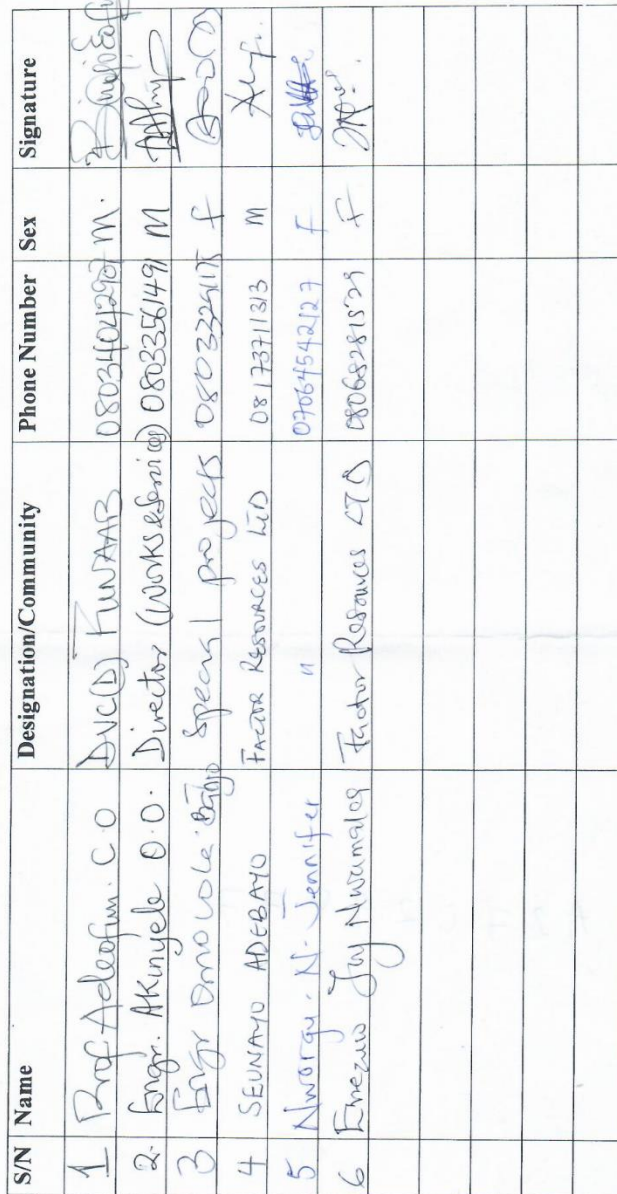 S/N Name Designation/Community Phone Number Sex Signature
1 Prof Adeofun. C.O DVC(D) FUNAAB 08034042907 M.
2. Engr. Akinyele O.O. Director (Works & Services) 08033561491 M
3 Engr Omowole Banjo Special projects F
4 SEUNAYO ADEBAYO FACTOR RESOURCES LTD 08173711313 M
5 Nworgu. N. Jennifer " 07064542127 F
6 Joy Factor Resources LTD 08068281529 F